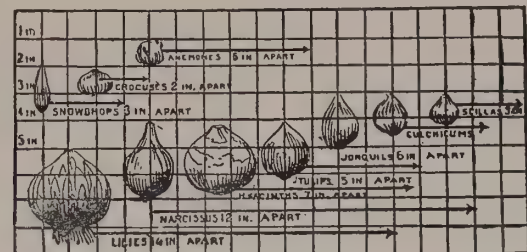 1 IN
ANEMONES 6 IN APART
2 IN
3 IN
CROCUSES 2 IN. APART
4 IN
SNOWDROPS 3 IN. APART
SCILLAS
CULCHICUMS
5 IN
JONQUILS 6 IN APART
TULIPS 5 IN APART
HYACINTHS 7 IN. APART
NARCISSUS 12 IN. APART
LILIES 14 IN APART